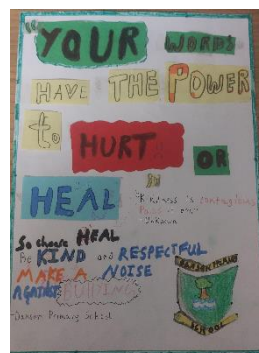 "YOUR WORDS
HAVE THE POWER
to HURT OR
HEAL"
"Kindness is contagious
Pass it on"
-Unknown
So choose HEAL
Be KIND and RESPECTFUL
MAKE A NOISE
AGAINST BULLYING
-Danson Primary School
DANSON PRIMARY
SCHOOL